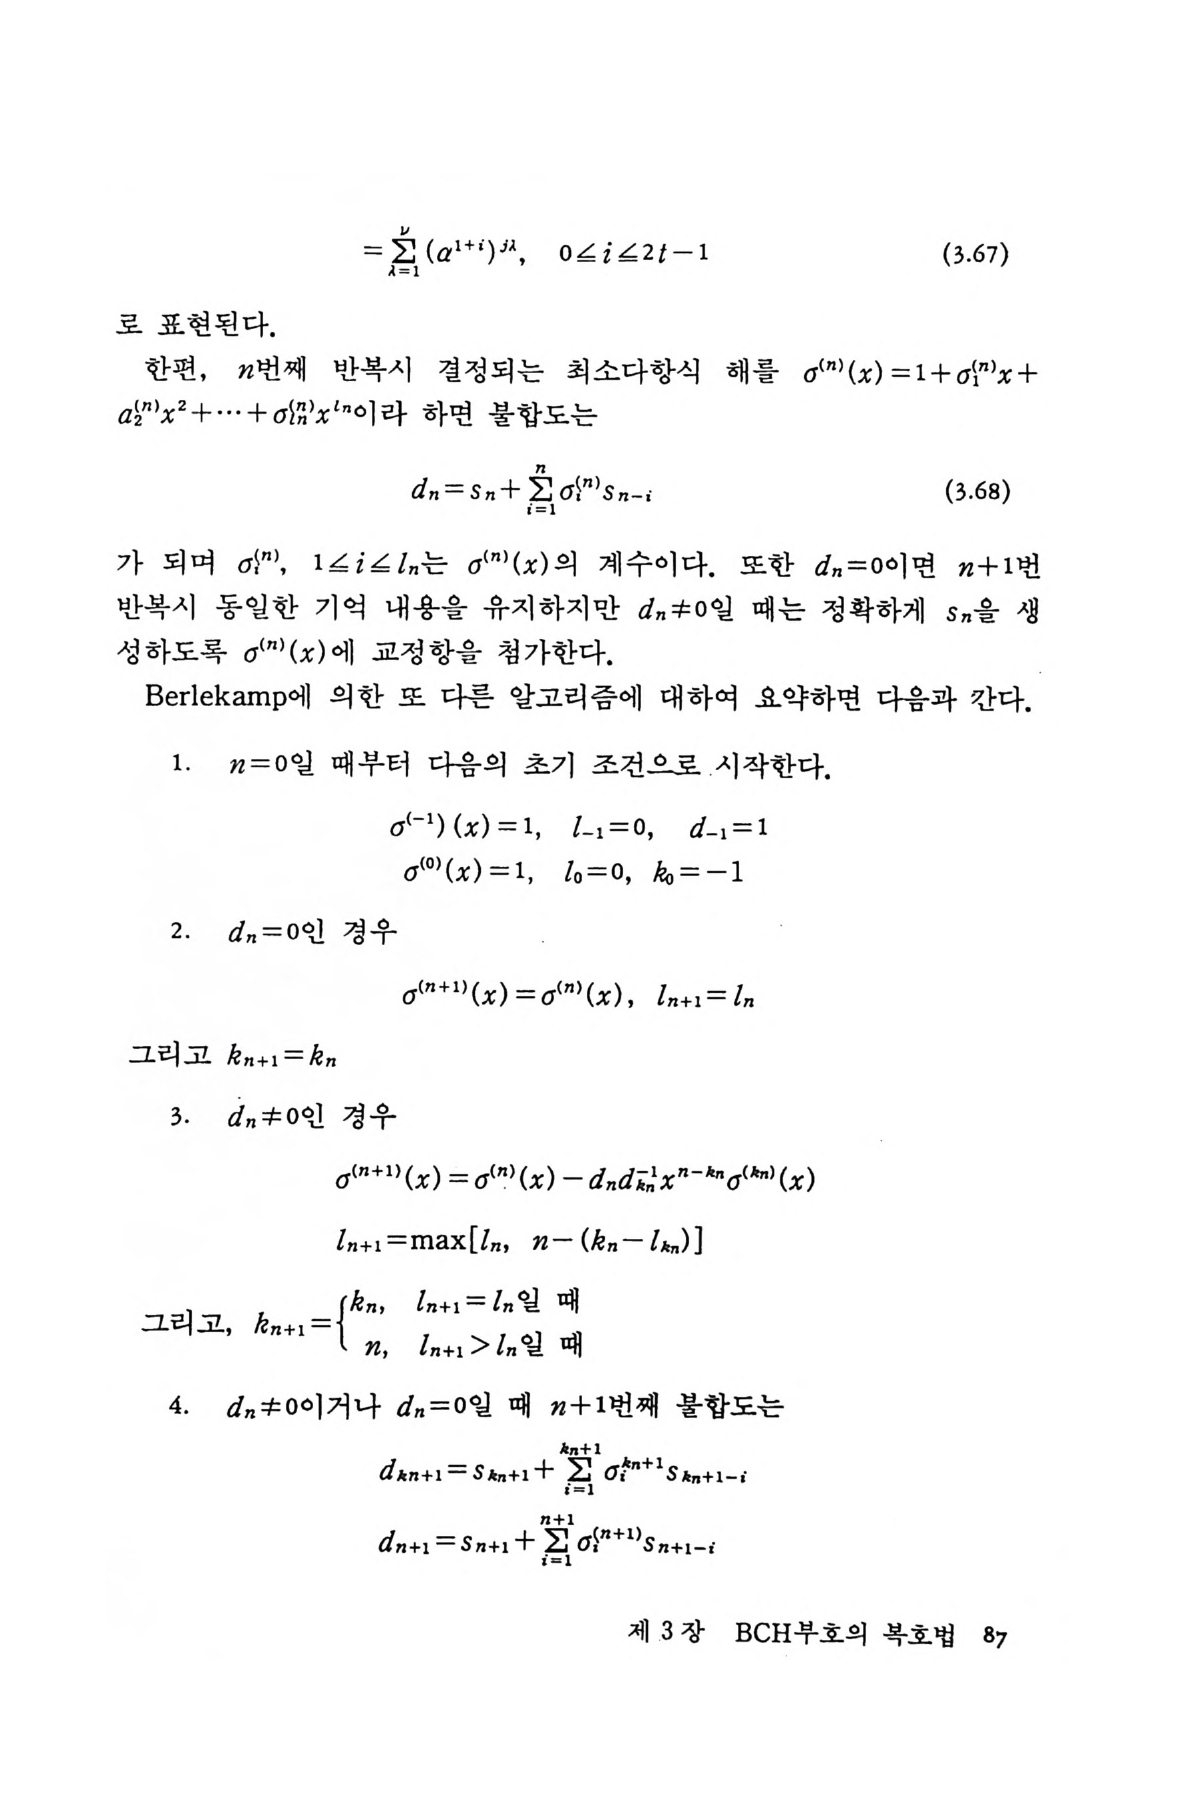 =∑_{λ=1}^{ν}(α^{1+i})^{jλ}, 0≦i≦2t−1 (3.67)
로 표현된다.
한편, n번째 반복시 결정되는 최소다항식 해를 σ^{(n)}(x)=1+σ_1^{(n)}x+
a_2^{(n)}x^2+⋯+σ_{ln}^{(n)}x^{ln}이라 하면 불합도는
d_n=s_n+∑_{i=1}^{n}σ_i^{(n)}s_{n−i} (3.68)
가 되며 σ_i^{(n)}, 1≦i≦l_n는 σ^{(n)}(x)의 계수이다. 또한 d_n=0이면 n+1번
반복시 동일한 기억 내용을 유지하지만 d_n≠0일 때는 정확하게 s_n을 생
성하도록 σ^{(n)}(x)에 교정항을 첨가한다.
Berlekamp에 의한 또 다른 알고리즘에 대하여 요약하면 다음과 간다.
1. n=0일 때부터 다음의 초기 조건으로 시작한다.
σ^{(−1)}(x)=1, l_{−1}=0, d_{−1}=1
σ^{(0)}(x)=1, l_0=0, k_0=−1
2. d_n=0인 경우
σ^{(n+1)}(x)=σ^{(n)}(x), l_{n+1}=l_n
그리고 k_{n+1}=k_n
3. d_n≠0인 경우
σ^{(n+1)}(x)=σ^{(n)}(x)−d_n d_{kn}^{−1}x^{n−kn}σ^{(kn)}(x)
l_{n+1}=max[l_n, n−(k_n−l_{kn})]
그리고, k_{n+1}={k_n, l_{n+1}=l_n일 때
n, l_{n+1}>l_n일 때
4. d_n≠0이거나 d_n=0일 때 n+1번째 불합도는
d_{kn+1}=s_{kn+1}+∑_{i=1}^{kn+1}σ_i^{kn+1}s_{kn+1−i}
d_{n+1}=s_{n+1}+∑_{i=1}^{n+1}σ_i^{(n+1)}s_{n+1−i}
제 3 장 BCH부호의 복호법 87